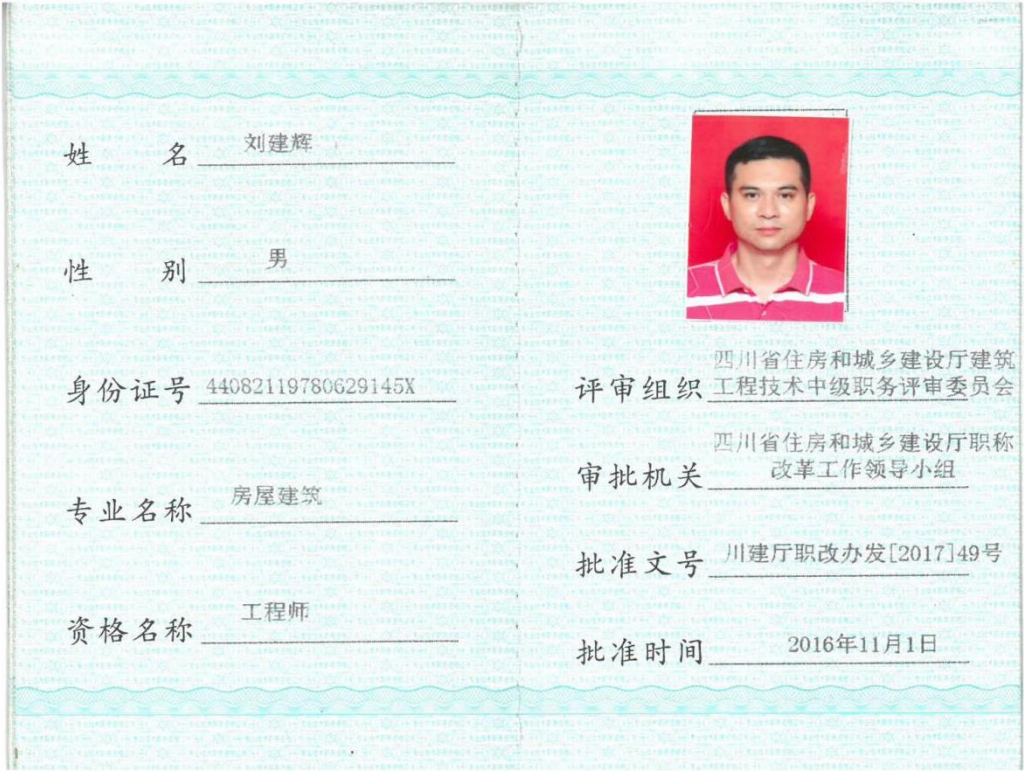 姓名 刘建辉
性别 男
身份证号 44082119780629145X
专业名称 房屋建筑
资格名称 工程师
评审组织 四川省住房和城乡建设厅建筑
工程技术中级职务评审委员会
审批机关 四川省住房和城乡建设厅职称
改革工作领导小组
批准文号 川建厅职改办发[2017]49号
批准时间 2016年11月1日